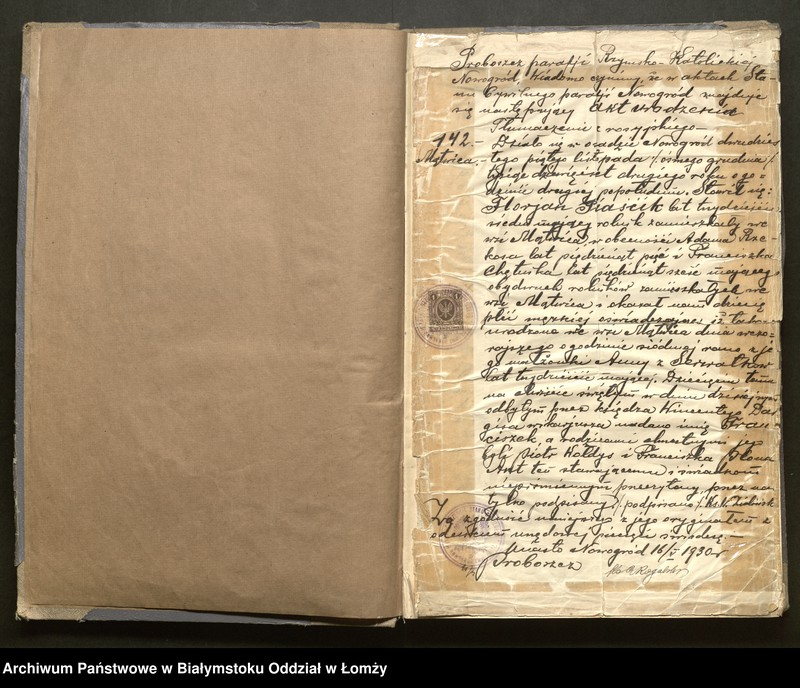 Proboszcz parafji Rzymsko-Katolickiej
Nowogród, Wiadomo czynimy, że w aktach Sta-
nu Cywilnego parafji Nowogród znajduje
się następujący Akt urodzenia
Tłumaczenie z rosyjskiego—
142.— Działo się w osadzie Nowogród dwudzies
Mątwica.— tego piątego listopada /:ósmego grudnia/
tysiąc dziewięćset drugiego roku o go-
dzinie drugiej popołudniu. Stawił się:
Florjan lat trzydzieści
siedm mający rolnik zamieszkały we
wsi Mątwica, w obecności Adama Rze-
kosa lat pięćdziesiąt pięć i Franciszka
lat pięćdziesiąt sześć mającego
obydwuch rolników zamieszkałych we
wsi Mątwica i okazał nam dziecię
płci męzkiej oświadczając iż takowe
urodzone we wsi Mątwica dnia wczo-
rajszego o godzinie siódmej rano z je-
go małżonki Anny z
lat trzydzieści mającej. Dziecięciu temu
na chrzcie świętym w dniu dzisiejszym
odbytym przez księdza Wincentego
wikarjusza nadano imię Fran-
ciszek, a rodzicami chrzestnymi jego
byli Piotr Hołdys i Franciszka
Akt ten stawającemu i świadkom
niepiśmiennym przeczytany przez nas
tylko podpisany /:podpisano/
Za zgodność niniejszego z jego oryginałem z
odciśnieniem urzędowej pieczęci świadczę.—
Miasto Nowogród 16/V 1930 r
Proboszcz
Archiwum Państwowe w Białymstoku Oddział w Łomży